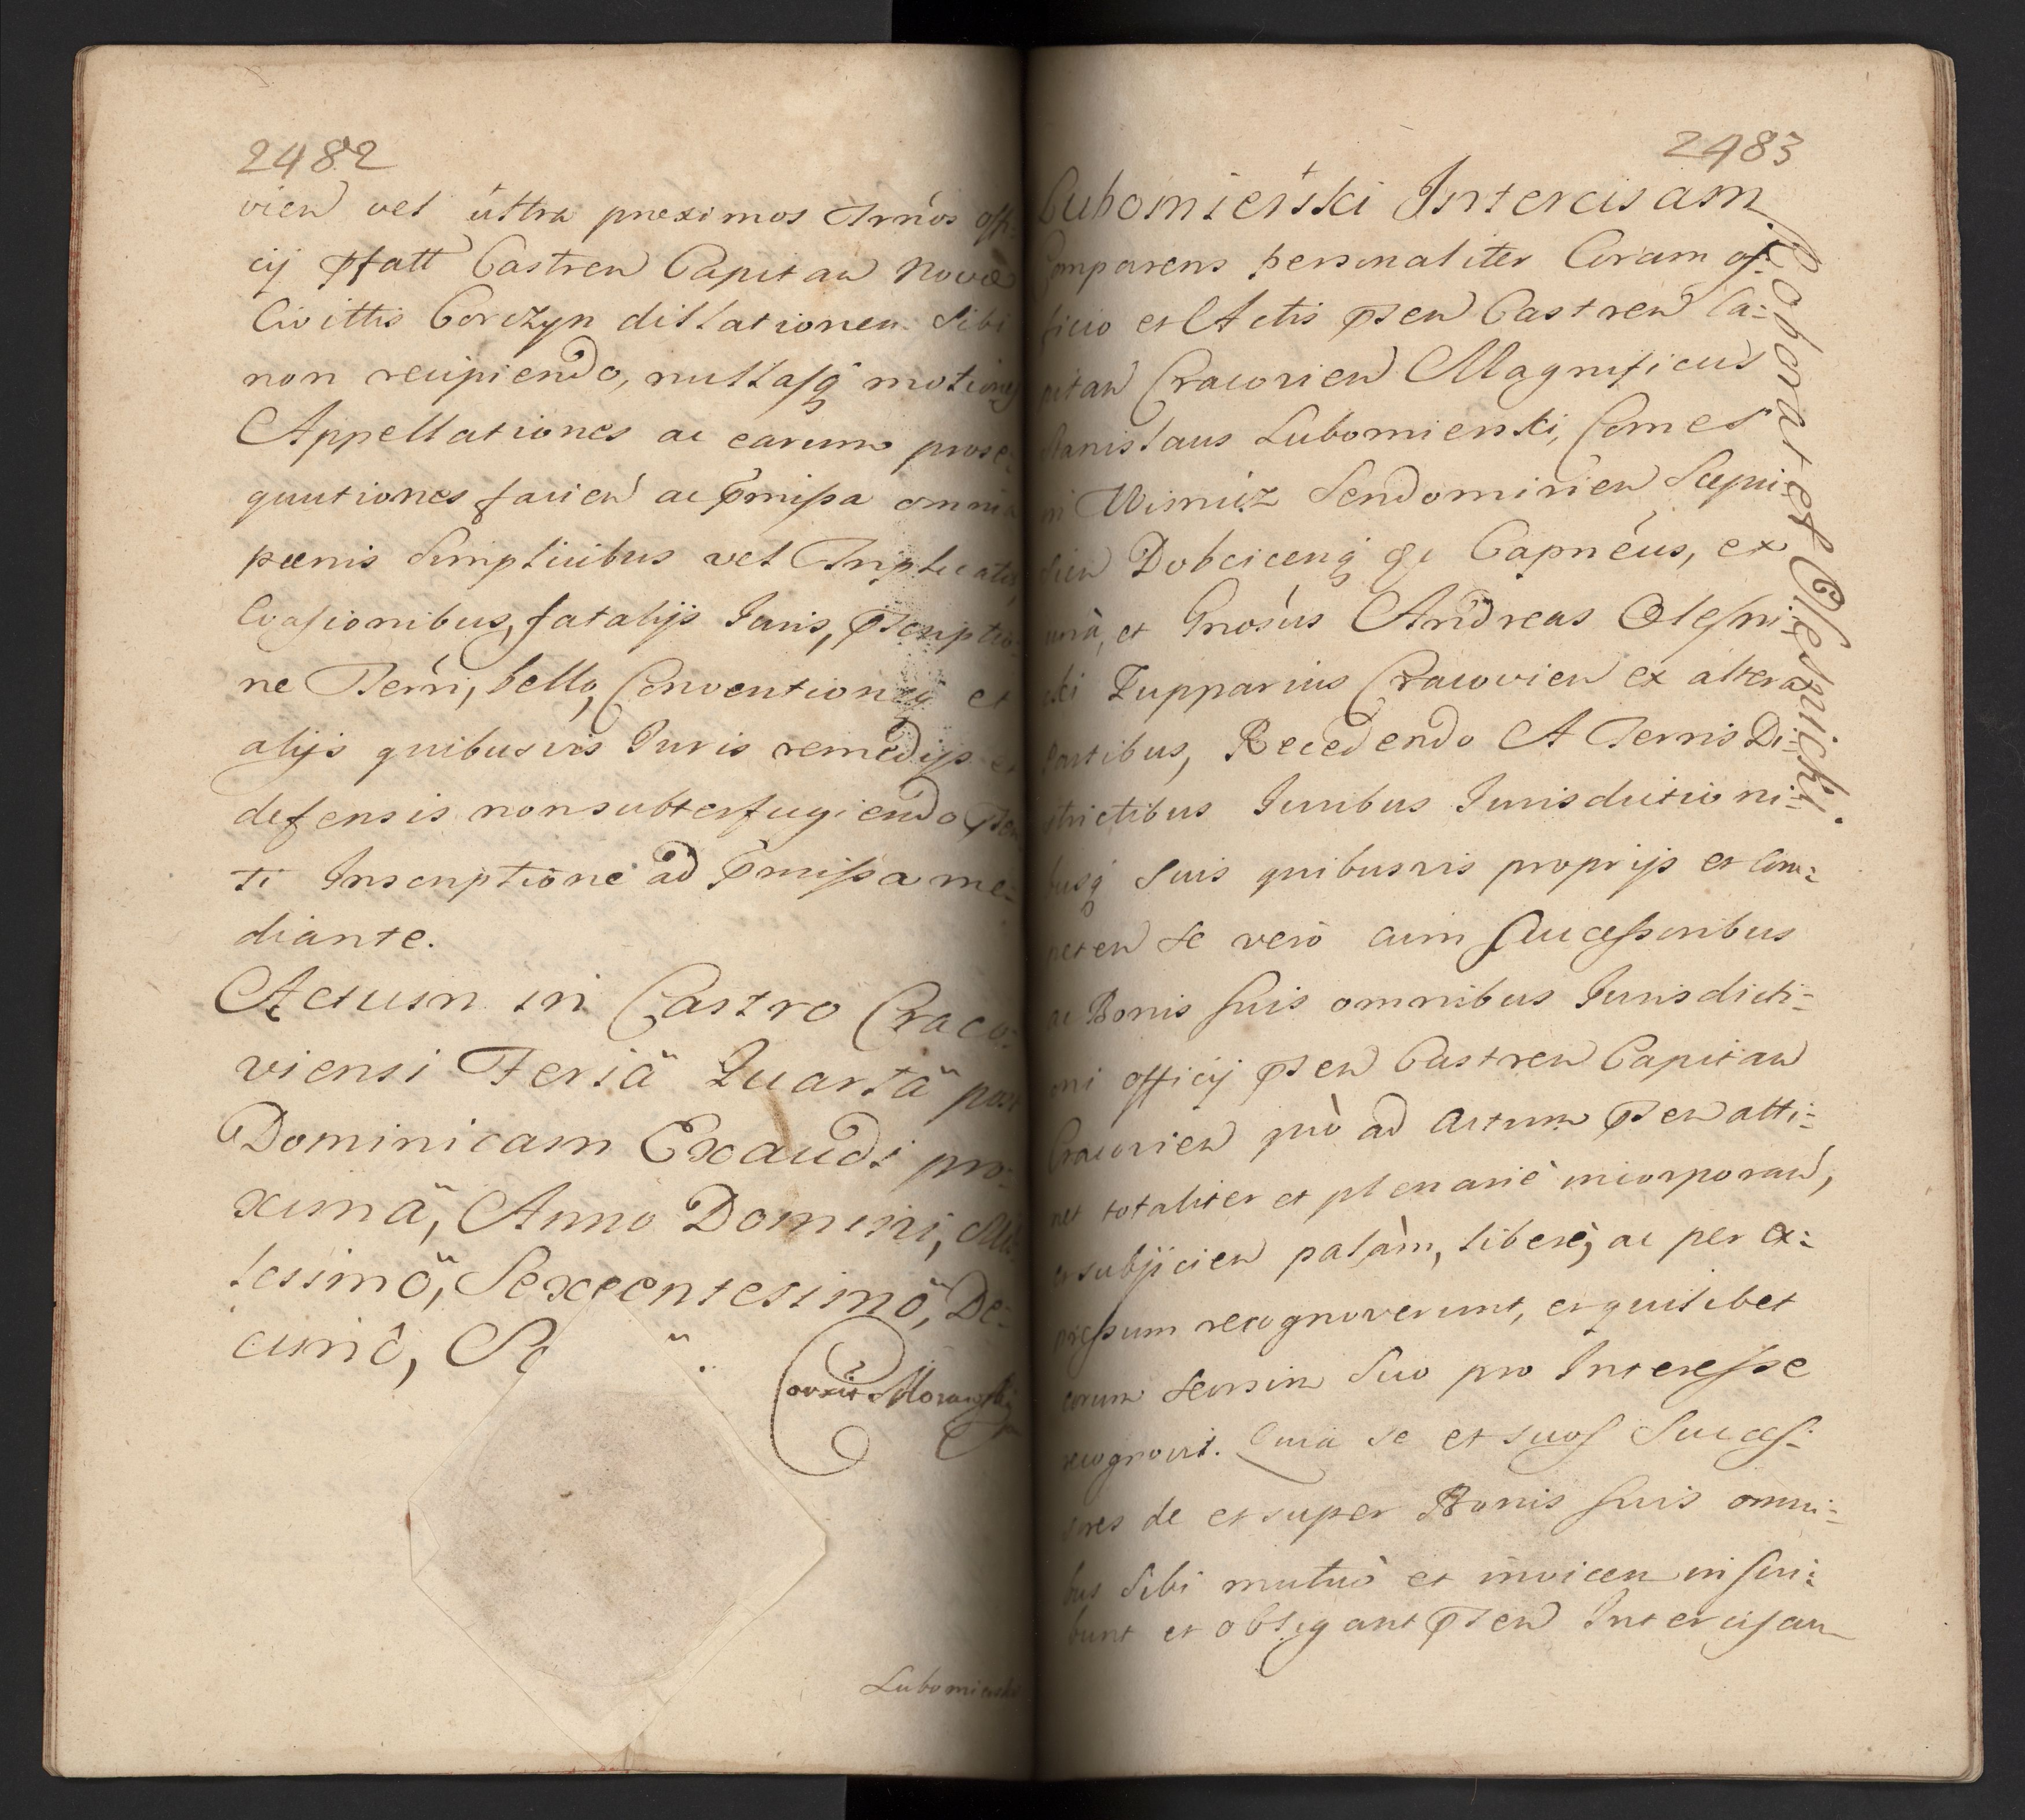 2482
vien vel ultra proximos Trnos offi:
cij Pfatt Castren Capitan Novæ
Civittis Corczyn dillationem Sibi
non recipiendo, nullasq motiones
Appellationes ac earum prose:
quutiones facien ac pmissa omnia
pœnis Simplicibus vel Triplicatis,
Evasionibus, fatalijs Iuris, pscriptio:
ne Terri, bello, Conventione et
alijs quibusvis Iuris remedijs et
defensis non subterfugiendo psen
ti Inscriptione ad pmissa me:
diante.
Actum in Castro Craco:
viensi Feriä Quartä post
Dominicam Exaudi pro:
ximä, Anno Domini, Mil
lesimö, Sexcentesimö, De:
cimô,
Corexit Morawski
Lubomierski
2483
Lubomierski Intercisam
roborat et Olesnicki.
Comparens personaliter Coram of:
ficio et Actis psen Castren Ca:
pitan Cracovien Magnificus
Stanislaus Lubomierski, Comes
in Wisnicz Sendomirien Scepu:
sien Dobcicenq &c Capneus, ex
una, et Gnosus Andreas Olesni:
cki Zupparius Cracovien ex altera
Partibus, Recedendo A Terris Di:
strictibus Iuribus Iurisdictioni:
busq Suis quibusvis proprijs et Com:
peten se vero cum Successoribus
ac Bonis suis omnibus Iurisdicti:
oni officij psen Castren Capitan
Cracovien quò ad actum psen atti:
net totaliter et plenariè incorporan,
et subijcien palàm, liberè, ac per ex:
pressum recognoverunt, et quilibet
eorum seorsim Suo pro Interesse
recognovit. Quia se et suos Succes:
sores de et super Bonis suis omni:
bus Sibi mutuò et invicem inscri:
bunt et obligant psen Intercisam